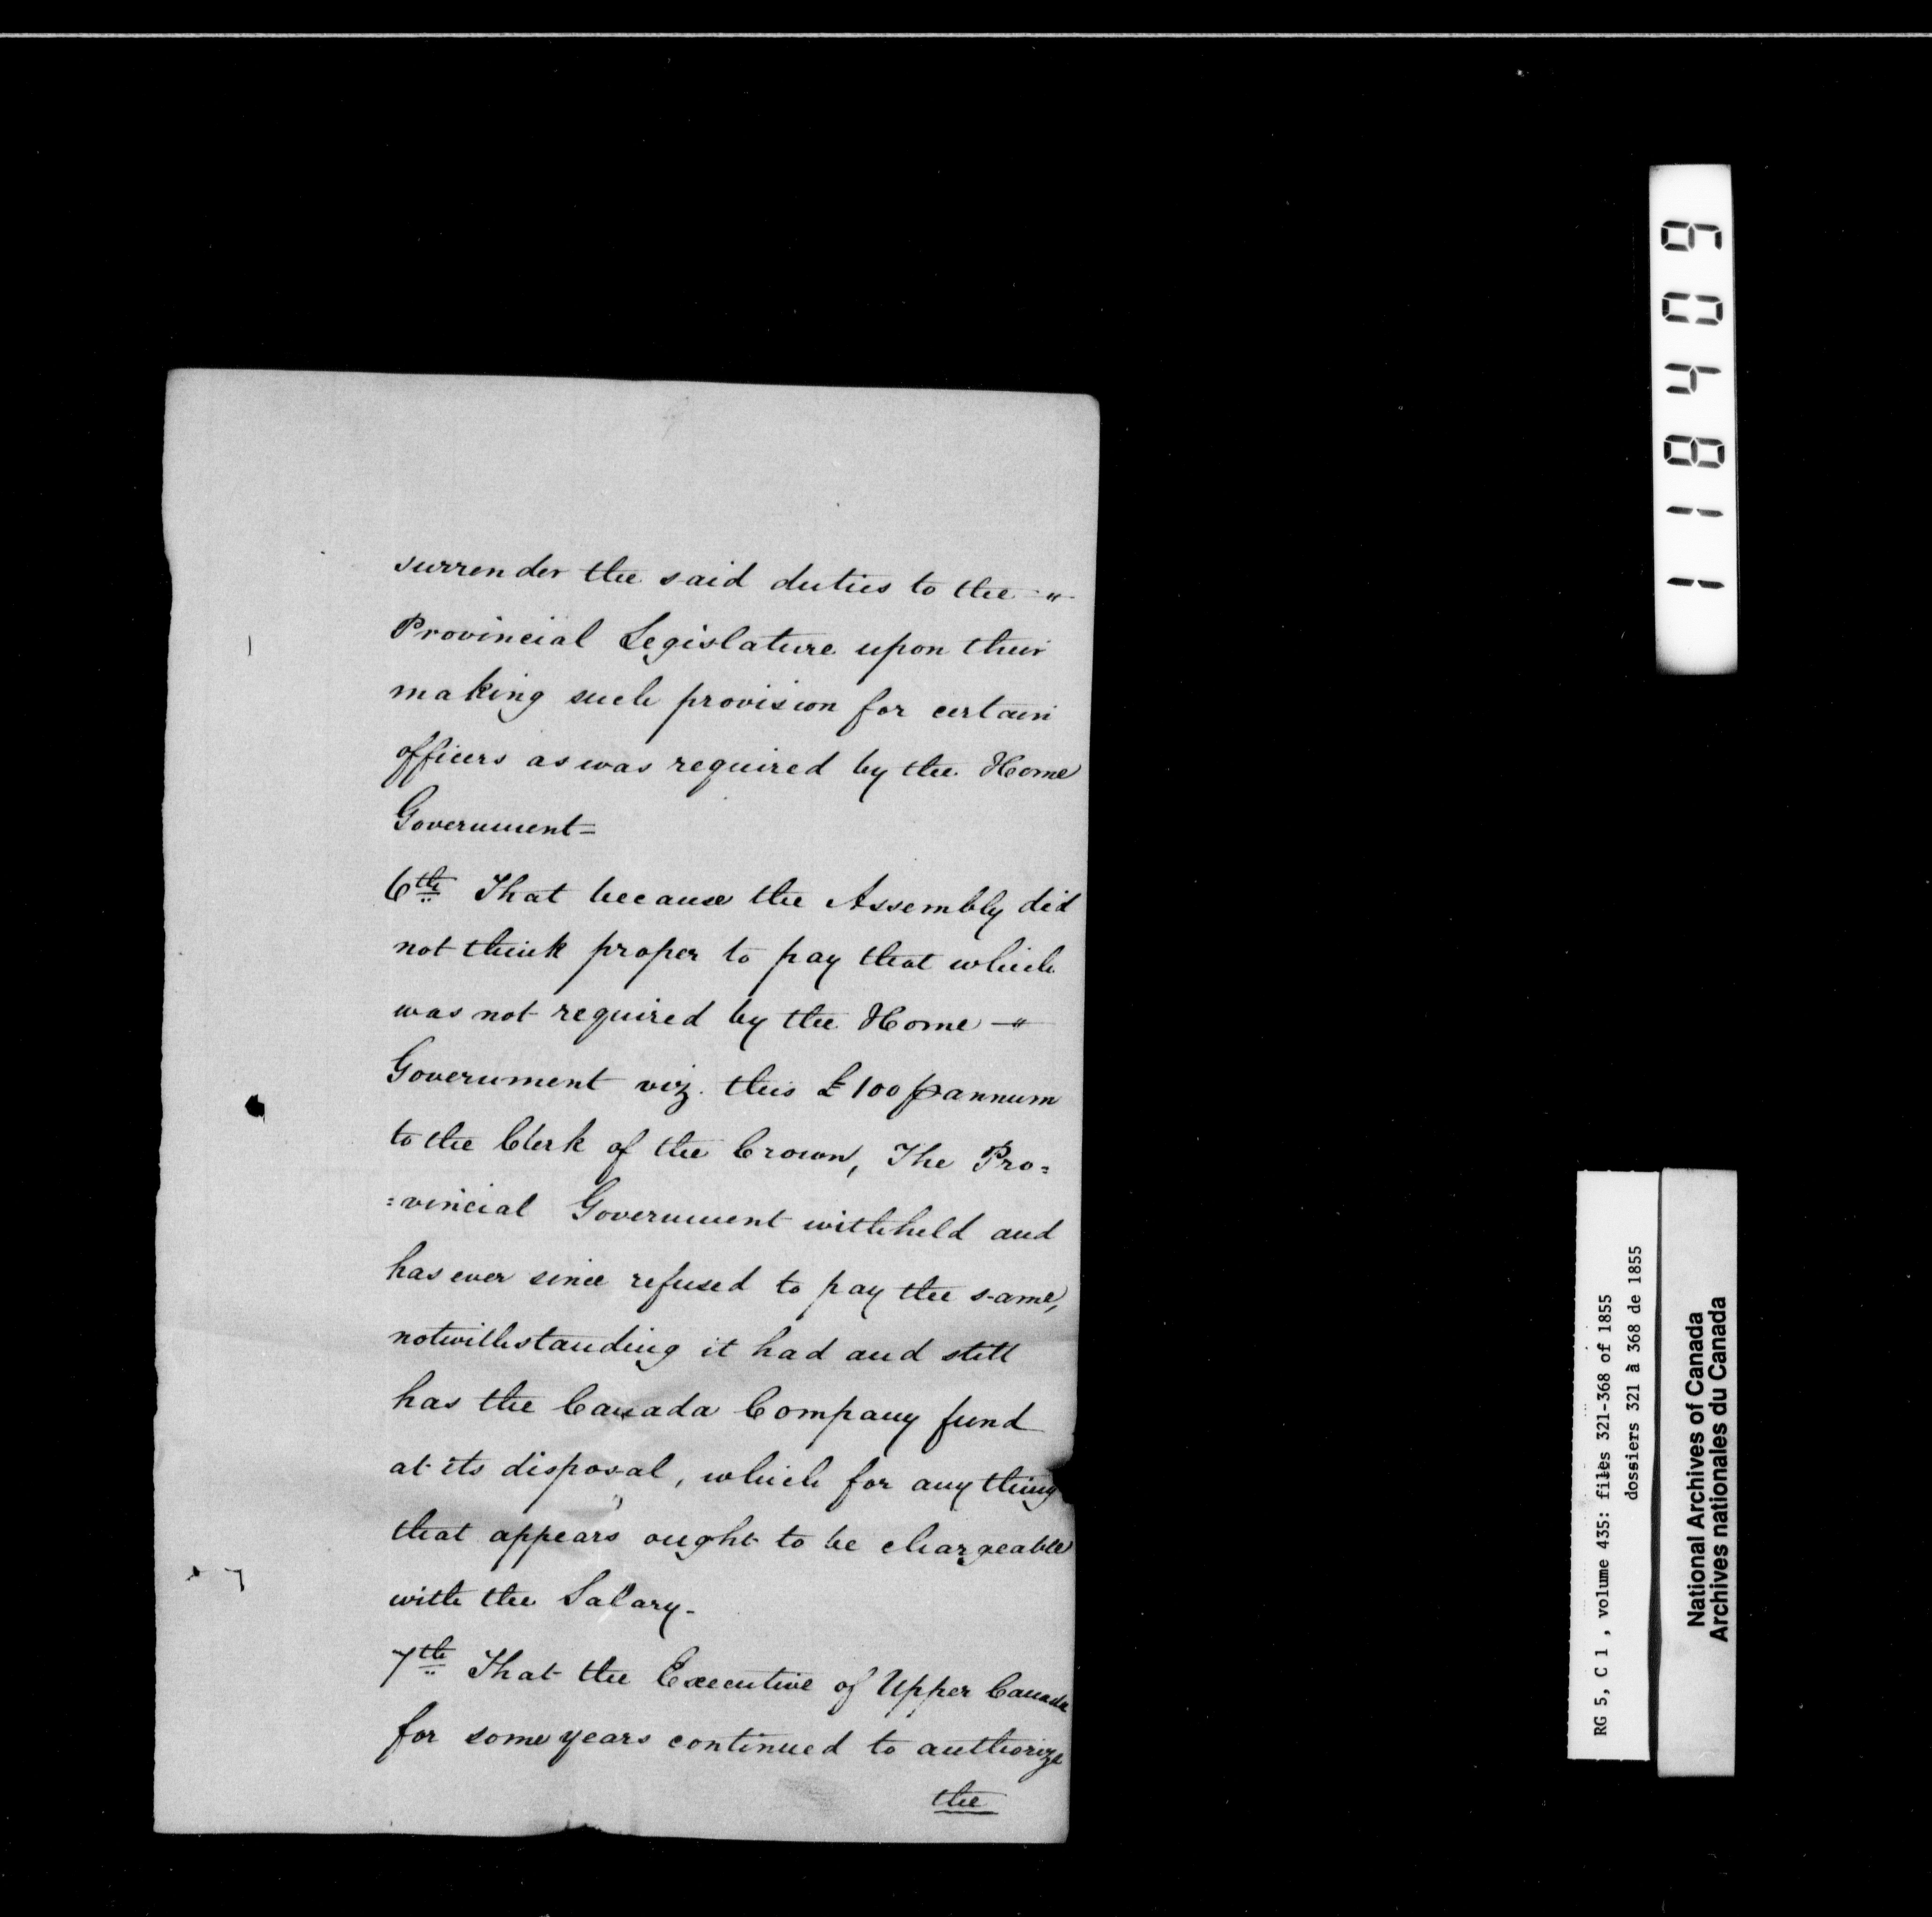 surrender the said duties to the -"
Provincial Legislature upon their
making such provision for certain
officers as was required by the Home
Government=
6th That because the Assembly did
not think proper to pay that which
was not required by the Home -"
Government viz. this £100 p annum
to the Clerk of the Crown, The Pro=
=vincial Government withheld and
has ever since refused to pay the same,
notwithstanding it had and still
has the Canada Company fund
at its disposal, which for any thing
that appears ought to be chargeable
with the Salary-
7th That the Executive of Upper Canada
for some years continued to authorize
the
118409
RG 5, C 1 , volume 435: files 321-368 of 1855
dossiers 321 à 368 de 1855
National Archives of Canada
Archives nationales du Canada